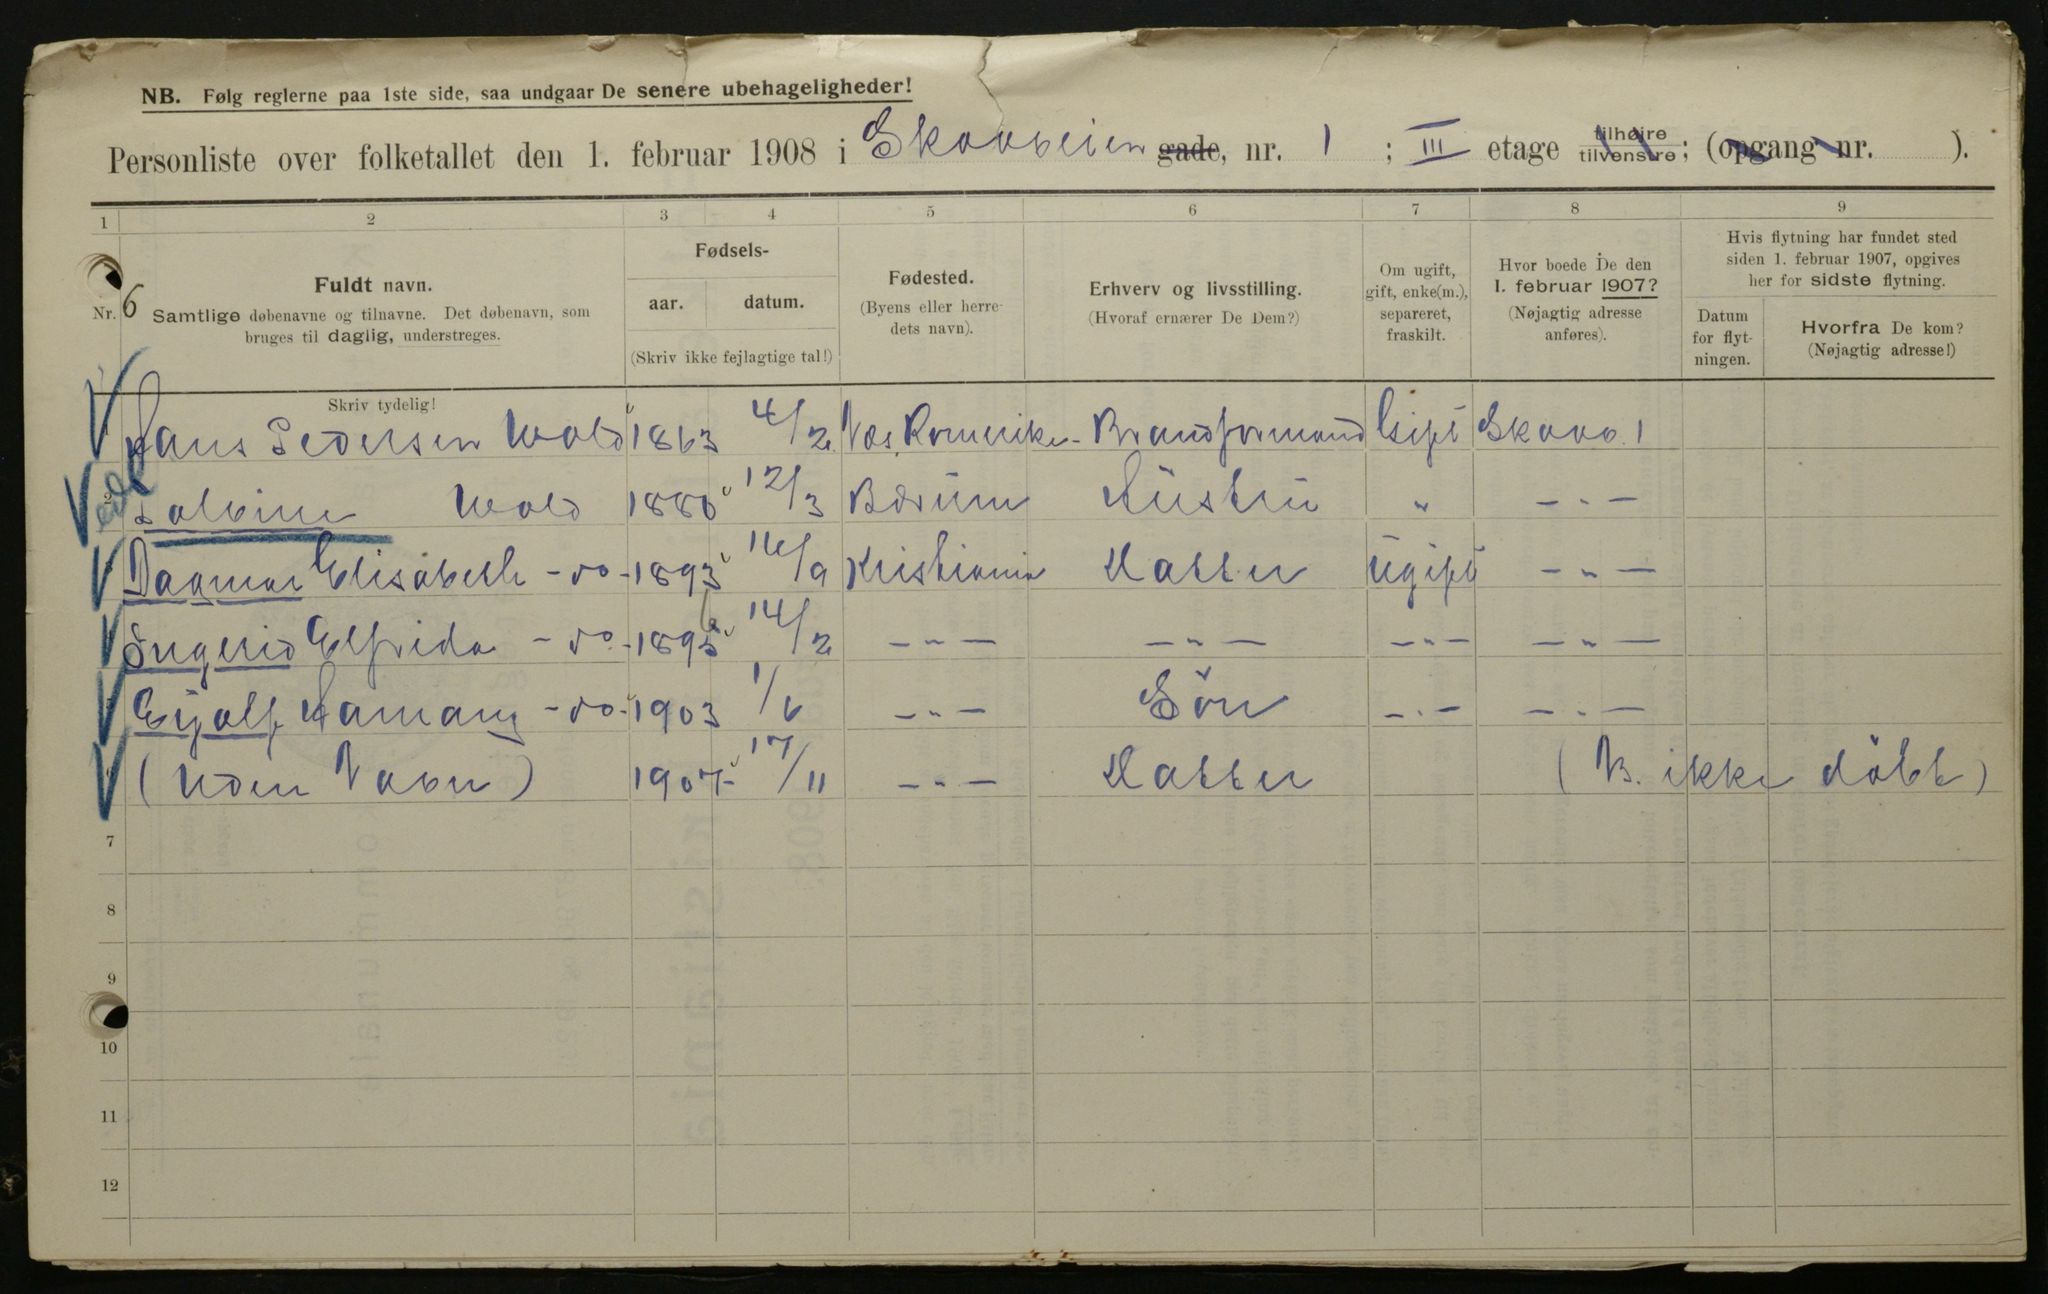 NB. Følg reglerne paa 1ste side, saa undgaar De senere ubehageligheder!
Personliste over folketallet den 1. februar 1908 i Skovveien gade, nr. 1 ; III etage tilhøire tilvenstre; (opgang nr. ).
1 2 3 4 5 6 7 8 9
Nr. 6
Fuldt navn.
Samtlige døbenavne og tilnavne. Det døbenavn, som
bruges til daglig, understreges.
Skriv tydelig!
Fødsels-
aar. datum.
(Skriv ikke fejlagtige tal!)
Fødested.
(Byens eller herre-
dets navn).
Erhverv og livsstilling.
(Hvoraf ernærer De Dem?)
Om ugift,
gift, enke(m.),
separeret,
fraskilt.
Hvor boede De den
1. februar 1907?
(Nøjagtig adresse
anføres).
Hvis flytning har fundet sted
siden 1. februar 1907, opgives
her for sidste flytning.
Datum
for flyt-
ningen.
Hvorfra De kom?
(Nøjagtig adresse!)
Hans Pedersen Wold 1863 4/2 Næs, Romerike Brandformand Gift Skovv. 1
2 Wold 1880 12/3 Bærum Hustru " — " —
Dagmar Elisabeth - do - 1893 16/9 Kristiania Datter Ugift — " —
Ingerid Elfrida - do - 1895 14/2 — " — — " — — " — — " —
Eyolf Hamang - do - 1903 1/6 — " — Sön — " — — " —
(Uden Navn) 1907 17/11 — " — Datter ( B. ikke döbt )
7
8
9
10
11
12